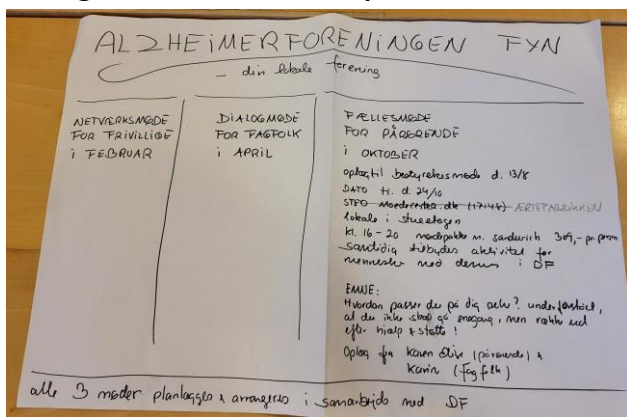 ALZHEIMERFORENINGEN FYN
- din lokale forening
NETVÆRKSMØDE
FOR FRIVILLIGE
i FEBRUAR
DIALOGMØDE
FOR FAGFOLK
i APRIL
FÆLLESMØDE
FOR PÅRØRENDE
i OKTOBER
oplæg til bestyrelsesmøde d. 13/8
DATO ti. d. 24/10
STED Mødecenter.dk (17:48) ÆRTEFABRIKKEN
lokale i stueetagen
kl. 16-20 mødepakke m. sandwich 309,- pr. person
samtidig tilbydes aktivitet for
mennesker med demens i DF
EMNE:
Hvordan passer du på dig selv? underforstået,
at du ikke skal gå enegang, men række ud
efter hjælp & støtte!
Oplæg fra Karen (pårørende) &
Karin (fagfolk)
alle 3 møder planlægges & arrangeres i samarbejde med DF